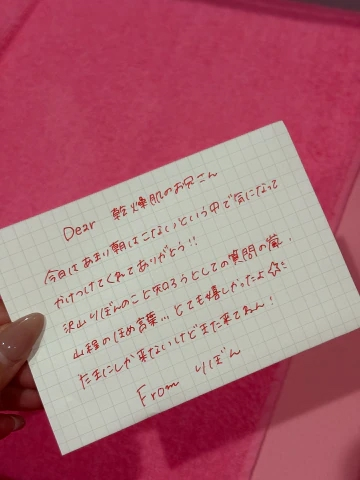 Dear 乾燥肌のお兄さん
今日はあまり朝はこないという中で気になって
かけつけてくれてありがとう!!
沢山りぼんのこと知ろうとしての質問の嵐!
山程のほめ言葉…とても嬉しかったよ
たまにしか来ないけどまた来てねん!
From りぼん